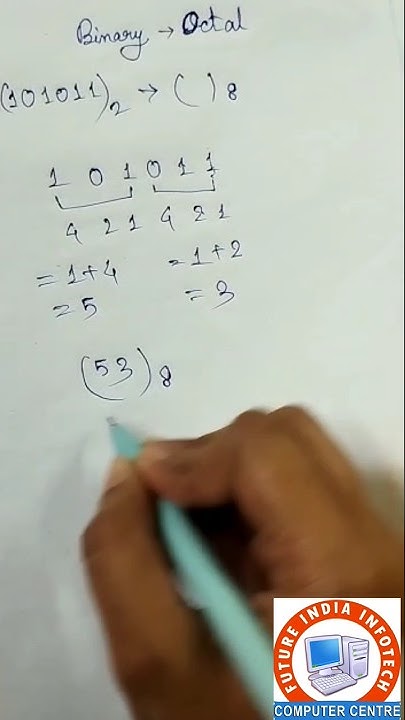 Binary → Octal
(101011)₂ → ( )₈
1 0 1 0 1 1
4 2 1 4 2 1
= 1+4 = 1+2
= 5 = 3
(53)₈
FUTURE INDIA INFOTECH
COMPUTER CENTRE